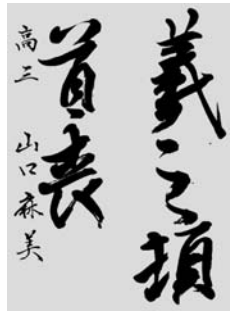 羲之頓
首喪
高三 山口麻美